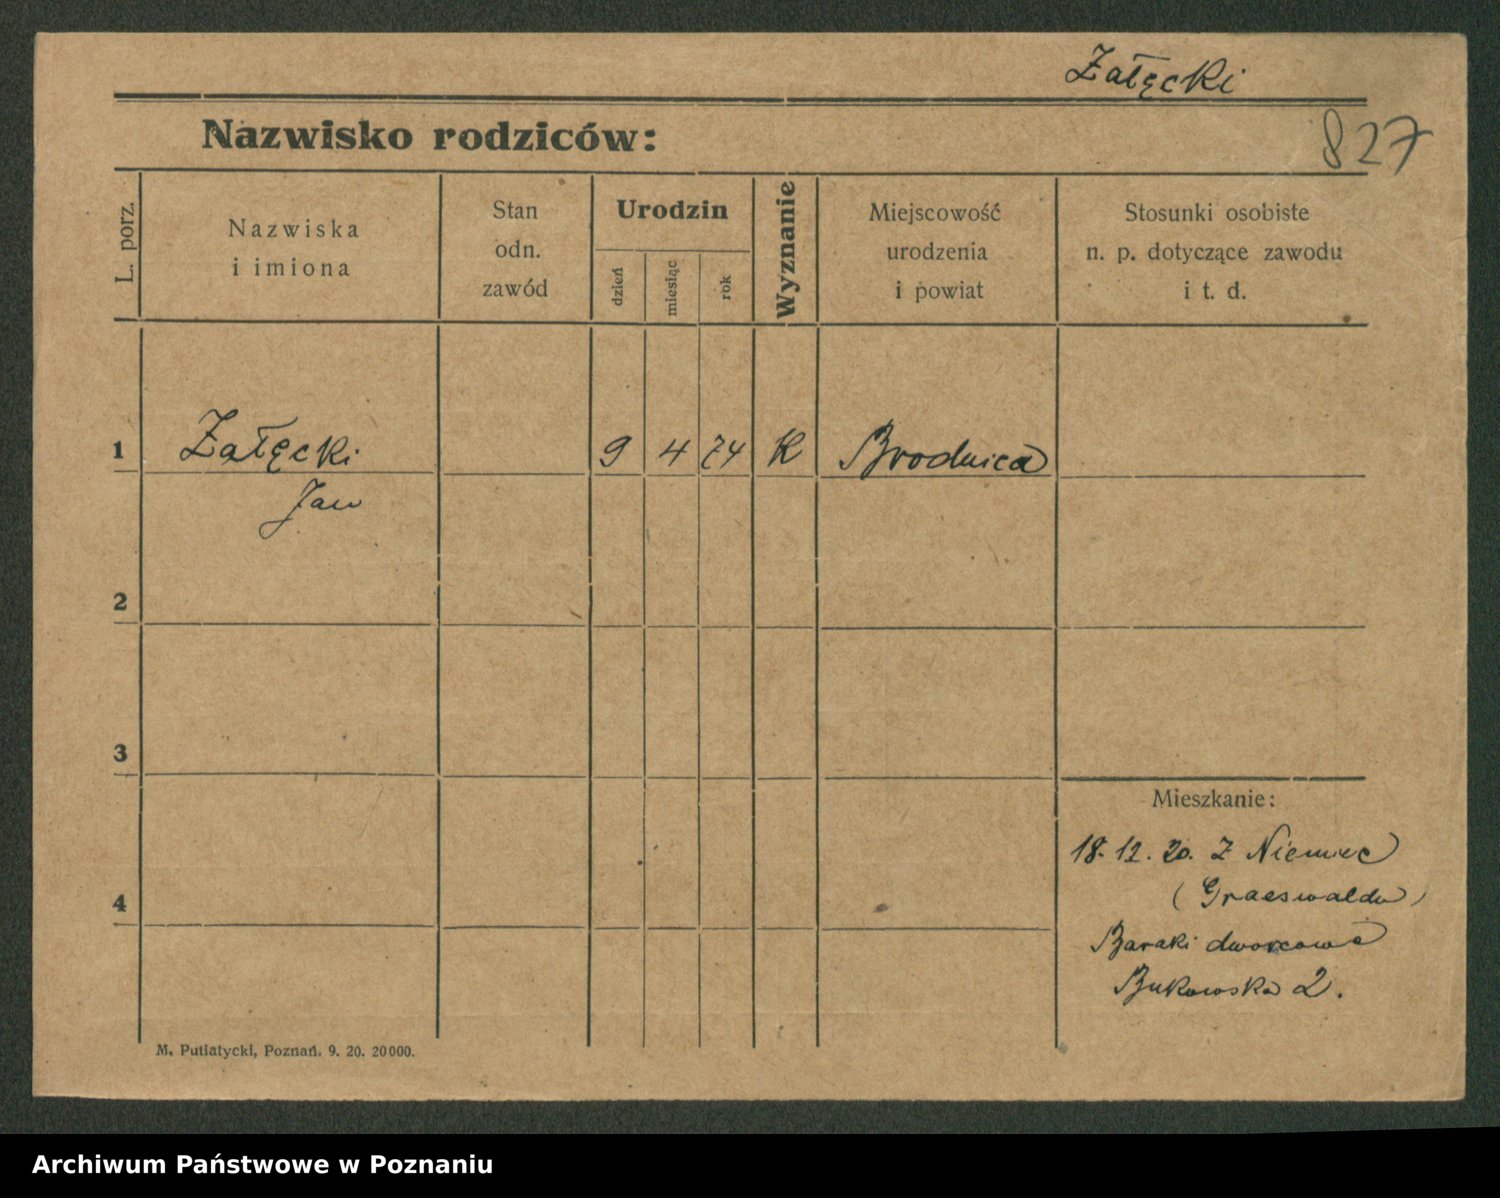 Załęcki
827
Nazwisko rodziców:
L. porz.
Nazwiska
i imiona
Stan
odn.
zawód
Urodzin
dzień
miesiąc
rok
Wyznanie
Miejscowość
urodzenia
i powiat
Stosunki osobiste
n. p. dotyczące zawodu
i t. d.
1 Załęcki 9 4 74 K Brodnica
Jan
2
3
Mieszkanie:
18. 12. 20. Z Niemiec
(Graeswaldu)
4
Baraki dworcowe
Bukowska 2.
M. Putiatycki, Poznań. 9. 20. 20000.
Archiwum Państwowe w Poznaniu